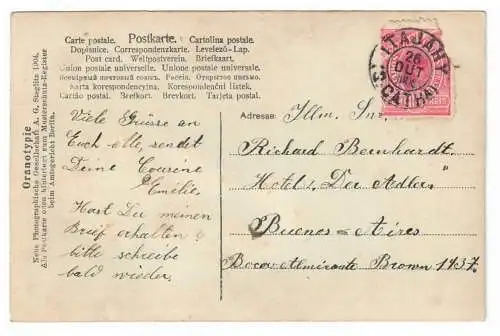 Carte postale. Postkarte. Cartolina postale.
Dopisnice. Correspondenzkarte. Levelező-Lap.
Post card. Weltpostverein. Briefkaart.
Union postale universelle. Unione postale universale.
Всемірный почтовый союзъ. Россія. Открытое письмо.
Karta korespondencyjna. Korespondenční lístek.
Cartão postal. Brevkort. Brevkort. Tarjeta postal.
Oranotypie
Neue Photographische Gesellschaft A. G. Steglitz 1904.
Als Postkarte oben hinterlegt zum Musterschutz-Register
beim Amtsgericht Berlin.
Viele Grüsse an
Euch alle, sendet
Deine Cousine
Emilie.
Hast Du meinen
Brief erhalten?
bitte schreibe
bald wieder.
ITAJAHY
26
OUT
CATHAR
Adresse: Illm. Snr.
Richard Bernhardt.
Hotel „Der Adler"
Buenos-Aires
Boca Almirante Brown 1437.